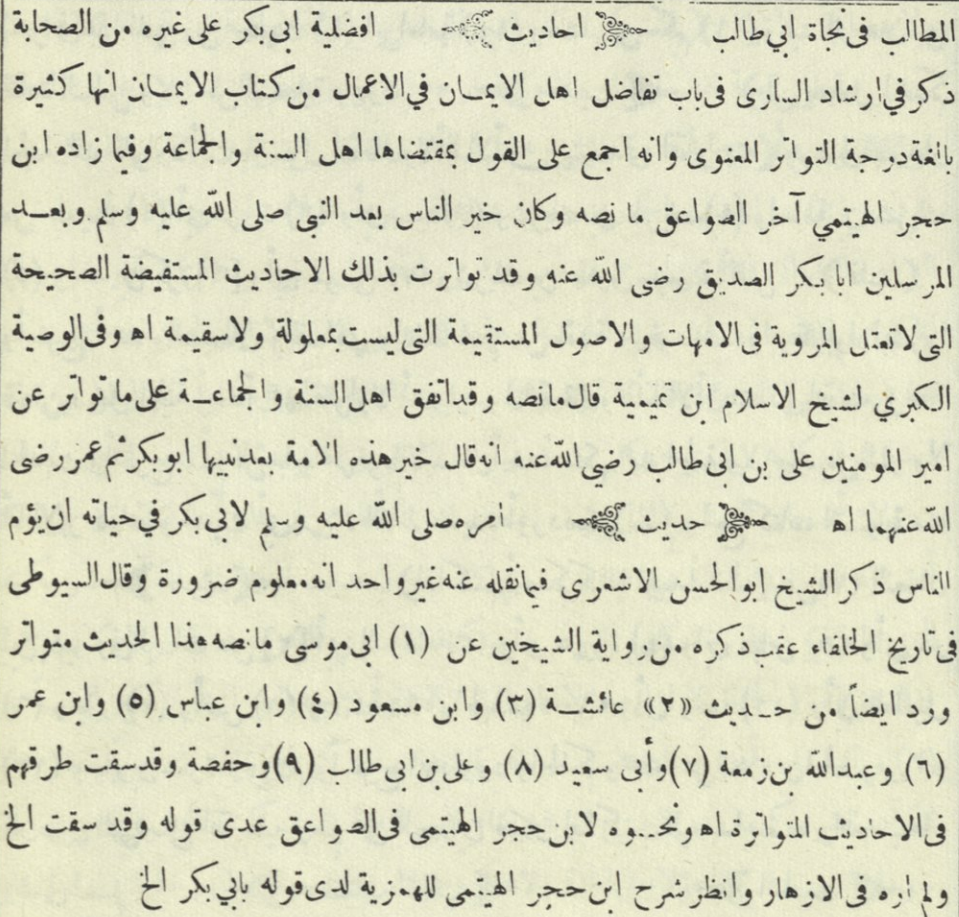 المطالب فى نجاة ابي طالب احاديث افضلية ابى بكر على غيره من الصحابة
ذكر في ارشاد السارى فى باب تفاضل اهل الايمان في الاعمال من كتاب الايمان انها كثيرة
بالغة درجة التواتر المعنوى وانه اجمع على القول بمقتضاها اهل السنة والجماعة وفيما زاده ابن
حجر الهيتمي آخر الصواعق ما نصه وكان خير الناس بعد النبى صلى الله عليه وسلم وبعد
المرسلين ابا بكر الصديق رضى الله عنه وقد تواترت بذلك الاحاديث المستفيضة الصحيحة
التى لا تعتل المروية فى الامهات والاصول المستقيمة التى ليست بمعلولة ولا سقيمة اه وفى الوصية
الكبري لشيخ الاسلام ابن تيمية قال ما نصه وقد اتفق اهل السنة والجماعة على ما تواتر عن
امير المومنين على بن ابى طالب رضي الله عنه انه قال خير هذه الامة بعد نبيها ابو بكر ثم عمر رضى
الله عنهما اه حديث امره صلى الله عليه وسلم لابى بكر في حياته ان يؤم
الناس ذكر الشيخ ابو الحسن الاشعرى فيما نقله عنه غير واحد انه معلوم ضرورة وقال السيوطى
فى تاريخ الخلفاء عقب ذكره من رواية الشيخين عن (١) ابى موسى ما نصه هذا الحديث متواتر
ورد ايضاً من حديث «٢» عائشة (٣) وابن مسعود (٤) وابن عباس (٥) وابن عمر
(٦) وعبد الله بن زمعة (٧) وأبى سعيد (٨) وعلى بن ابى طالب (٩) وحفصة وقد سقت طرقهم
فى الاحاديث المتواترة اه ونحوه لابن حجر الهيتمى فى الصواعق عدى قوله وقد سقت الخ
ولم اره فى الازهار وانظر شرح ابن حجر الهيتمى للهمزية لدى قوله بابي بكر الخ